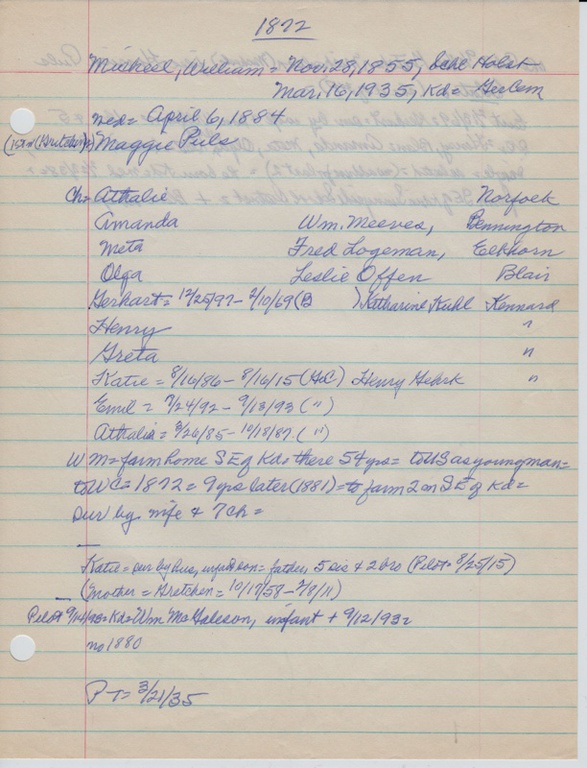 1872
Michiel, William = Nov. 28, 1855, Holst
Mar. 16, 1935, Kd =
Wed = April 6, 1884
Maggie Puls
Ch = Athalie Norfolk
Amanda Wm. Meeves, Bennington
Meta Fred Logeman, Elkhorn
Olga Leslie Offen Blair
Gerhart = 12/25/97 - 2/10/69 (B ) Katharine Kuhl Kennard
Henry "
Greta "
Katie = 8/16/86 - 8/16/15 (GC) Henry "
Emil = 7/24/92 - 9/13/93 (")
Athalia = 3/26/85 - 10/18/87. (")
Wm = farm home SE of Kd = there 54 yrs = to US as young man =
to WC = 1872 = 9 yrs later (1881) = to farm 2 m SE of Kd =
sur by wife & 7 ch =
Katie = sur by hus, son = father, 5 sis & 2 bro (Pilot = 8/25/15)
(Mother = Gretchen = 10/17/58 - 7/8/11)
Pilot = Kd = Wm infant + 9/12/93 =
no 1880
P-T = 3/21/35